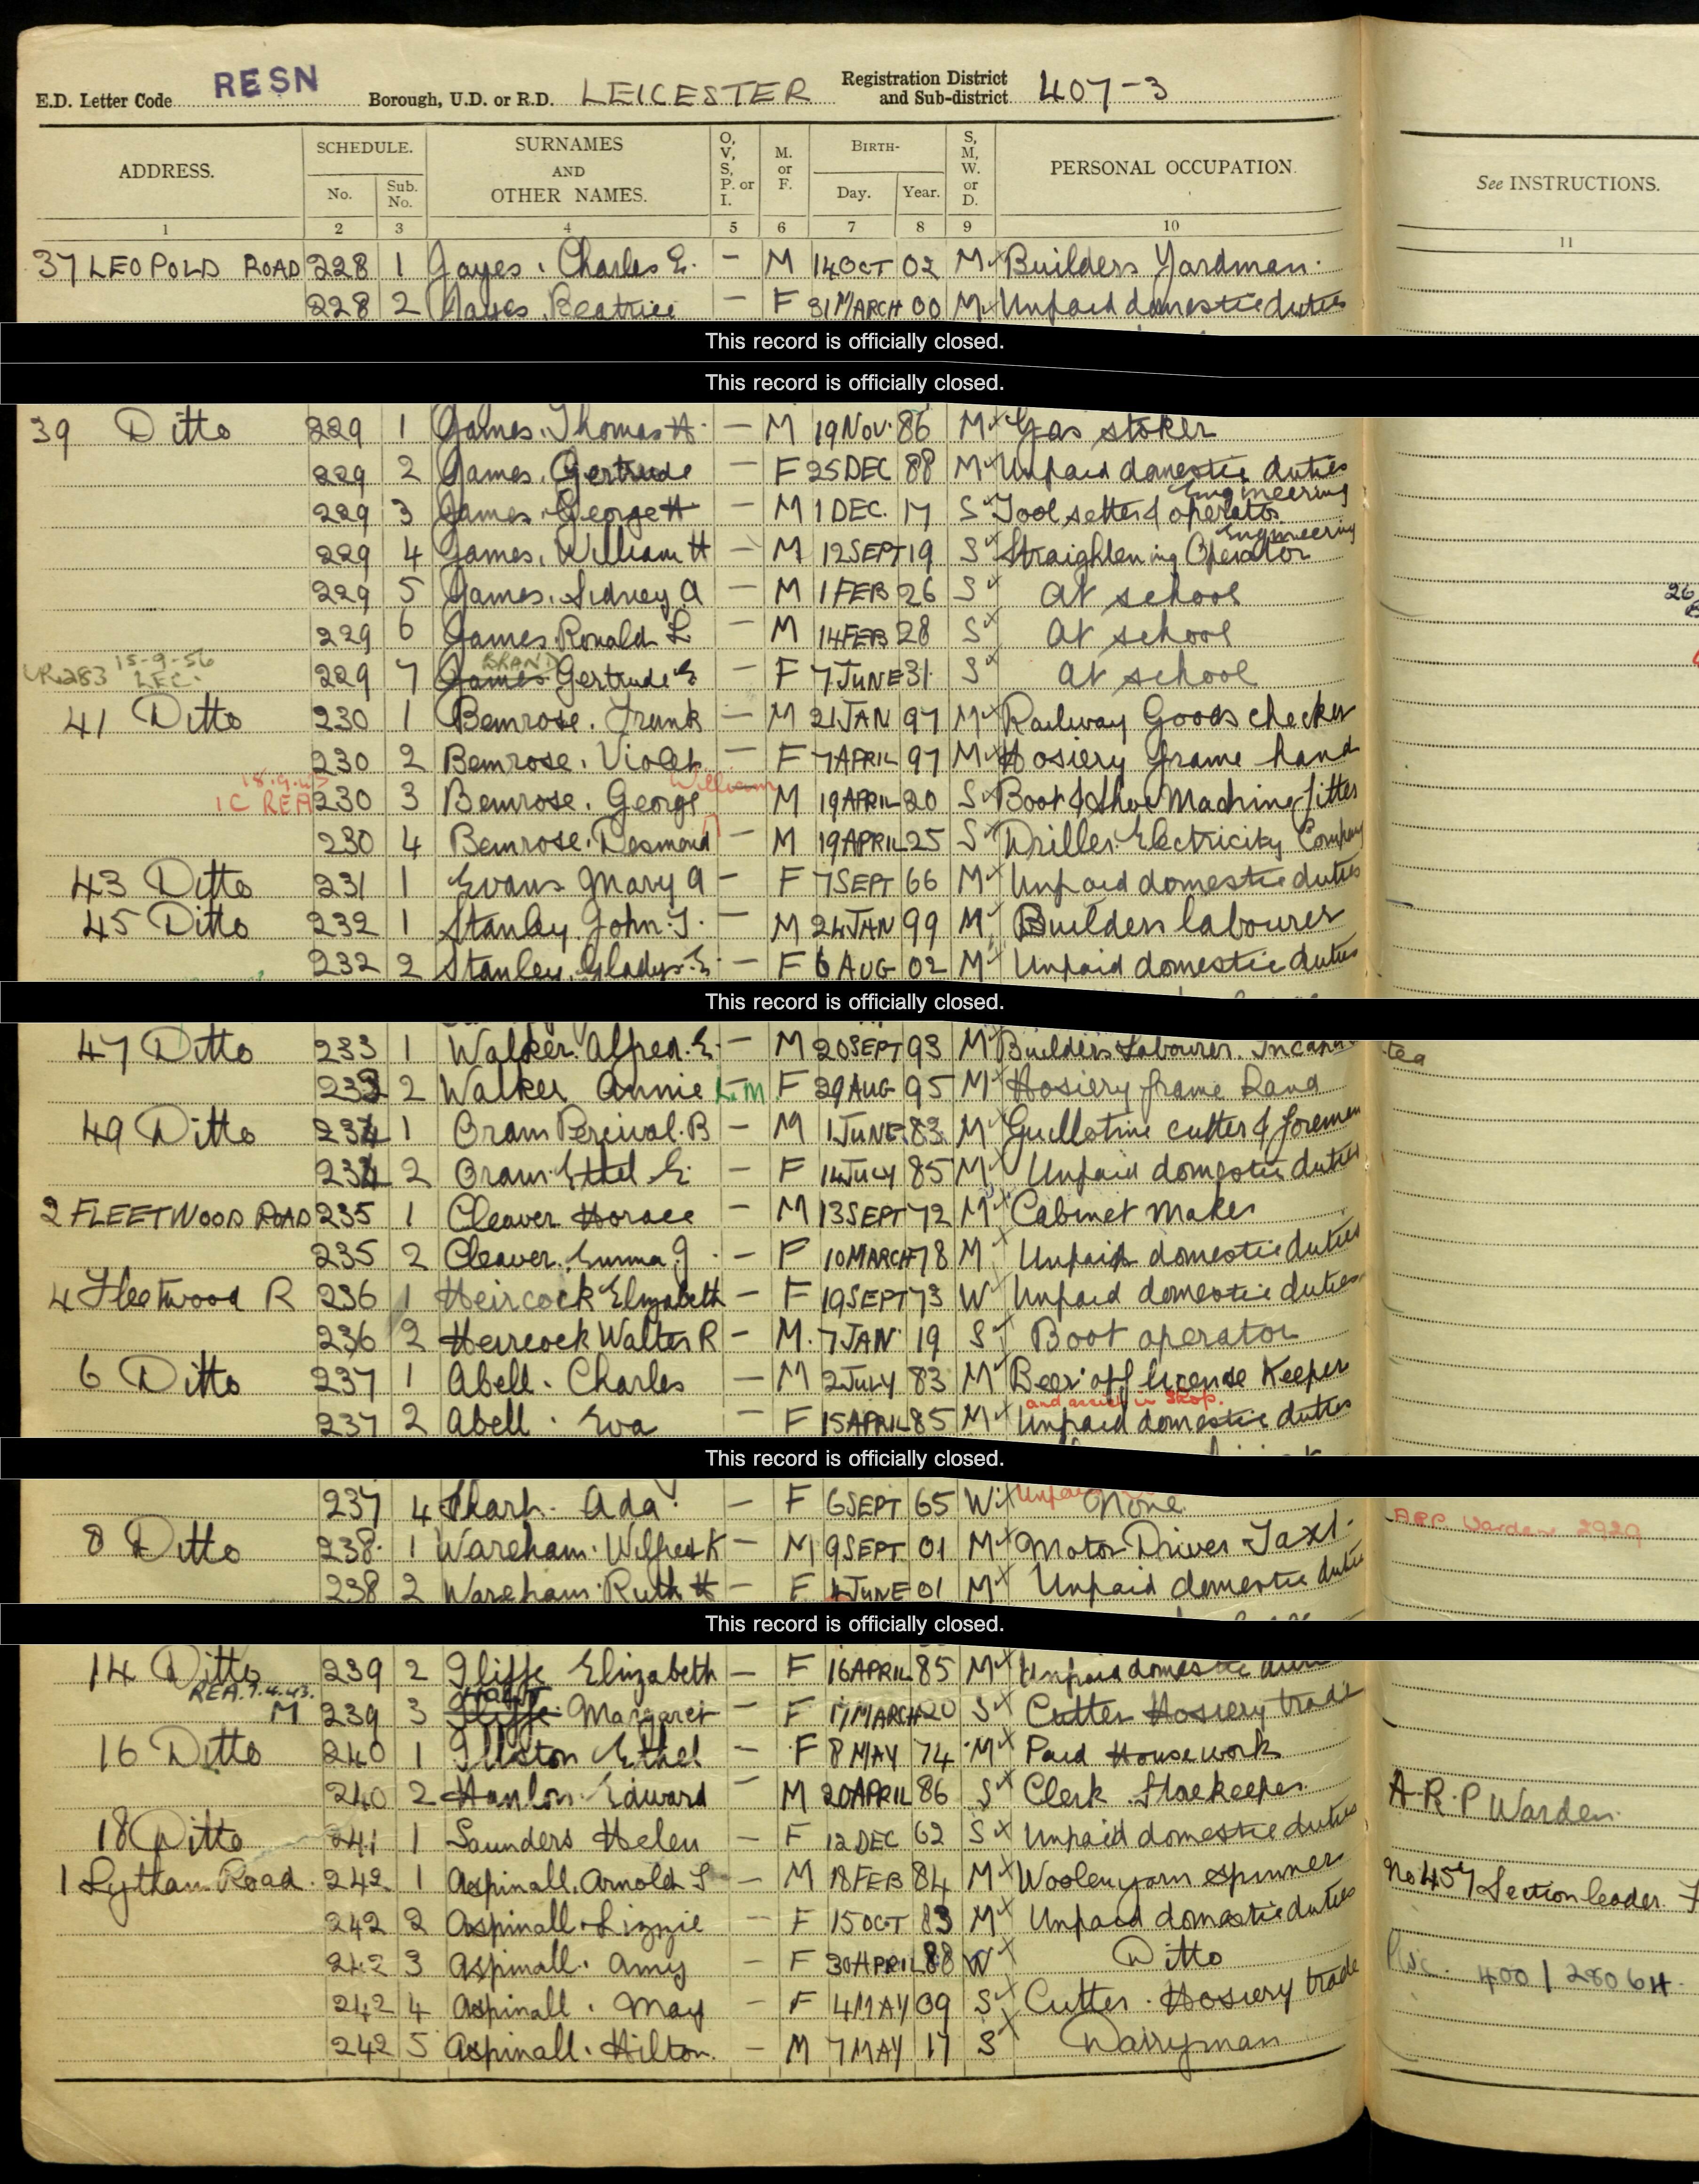 E.D. Letter Code RESN Borough, U.D. or R.D. LEICESTER Registration District and Sub-district 407-3
ADDRESS. SCHEDULE. No. Sub. No. SURNAMES AND OTHER NAMES. O, V, S, P. or I. M. or F. BIRTH- Day. Year. S, M, W. or D. PERSONAL OCCUPATION. See INSTRUCTIONS.
1 2 3 4 5 6 7 8 9 10 11
37 LEOPOLD ROAD 228 1 Charles E. - M 14 OCT 02 M Builders Yardman.
228 2 Beatrice - F 31 MARCH 00 M Unpaid domestic duties
This record is officially closed.
This record is officially closed.
39 Ditto 229 1 James. Thomas H. - M 19 NOV. 86 M Gas stoker
229 2 James. Gertrude - F 25 DEC 88 M Unpaid domestic duties
229 3 James. George H - M 1 DEC. 17 S Tool setter & operator Engineering
229 4 James. William H - M 12 SEPT 19 S Straightening Operator Engineering
229 5 James. Sidney A - M 1 FEB 26 S At school
26
229 6 James. Ronald L - M 14 FEB 28 S At school
15-9-56 BRAND
229 7 James Gertrude E - F 7 JUNE 31 S At school
41 Ditto 230 1 Bemrose. Frank - M 21 JAN 97 M Railway Goods checker
230 2 Bemrose. Violet - F 7 APRIL 97 M Hosiery frame hand
William
REA 230 3 Bemrose. George M 19 APRIL 20 S Boot & Shoe Machine fitter
230 4 Bemrose. Desmond - M 19 APRIL 25 S Driller Electricity Company
43 Ditto 231 1 Evans Mary A - F 7 SEPT 66 M Unpaid domestic duties
45 Ditto 232 1 Stanley. John. T. - M 24 JAN 99 M Builders labourer
232 2 Stanley. Gladys. E - F 6 AUG 02 M Unpaid domestic duties
This record is officially closed.
47 Ditto 233 1 Walker. Alfred. E. - M 20 SEPT 93 M Builders Labourer.
233 2 Walker Annie L.M F 29 AUG 95 M Hosiery frame hand
49 Ditto 234 1 Oram Percival. B - M 1 JUNE 83 M Guillotine cutter & foreman
234 2 Oram. Ethel E. - F 14 JULY 85 M Unpaid domestic duties
2 FLEETWOOD ROAD 235 1 Cleaver Horace - M 13 SEPT 72 M Cabinet Maker
235 2 Cleaver. Emma J. - F 10 MARCH 78 M Unpaid domestic duties
4 Fleetwood R 236 1 Heircock Elizabeth - F 19 SEPT 73 W Unpaid domestic duties
236 2 Heircock Walter R - M. 7 JAN 19 S Boot operator
6 Ditto 237 1 Abell. Charles - M 2 JULY 83 M Beer off license Keeper
and assist in shop.
237 2 Abell. Eva - F 15 APRIL 85 M Unpaid domestic duties
This record is officially closed.
237 4 Sharp. Ada - F 6 SEPT 65 W None
ARP Warden 2929
8 Ditto 238. 1 Wareham. Wilfred K - M 9 SEPT 01 M Motor Driver Taxi.
238 2 Wareham. Ruth H - F 4 JUNE 01 M Unpaid domestic duties
This record is officially closed.
14 Ditto 239 2 Iliffe Elizabeth - F 16 APRIL 85 M Unpaid domestic duties
REA. 7.4.43.
M 239 3 Iliffe Margaret - F 17 MARCH 20 S Cutter Hosiery trade
16 Ditto 240 1 Illston Ethel - F 8 MAY 74 M Paid Housework
240 2 Hanlon. Edward - M 20 APRIL 86 S Clerk. Storekeeper. A.R.P Warden
18 Ditto 241 1 Saunders Helen - F 12 DEC 62 S Unpaid domestic duties
1 Lytham Road. 242 1 Aspinall. Arnold S - M 18 FEB 84 M Woolen yarn spinner No 457 Section leader. F
242 2 Aspinall. Lizzie - F 15 OCT 83 M Unpaid domestic duties
242 3 Aspinall. Amy - F 30 APRIL 88 W Ditto
400 / 2806H
242 4 Aspinall. May - F 4 MAY 09 S Cutter. Hosiery trade
242 5 Aspinall. Hilton. - M 7 MAY 17 S Dairyman